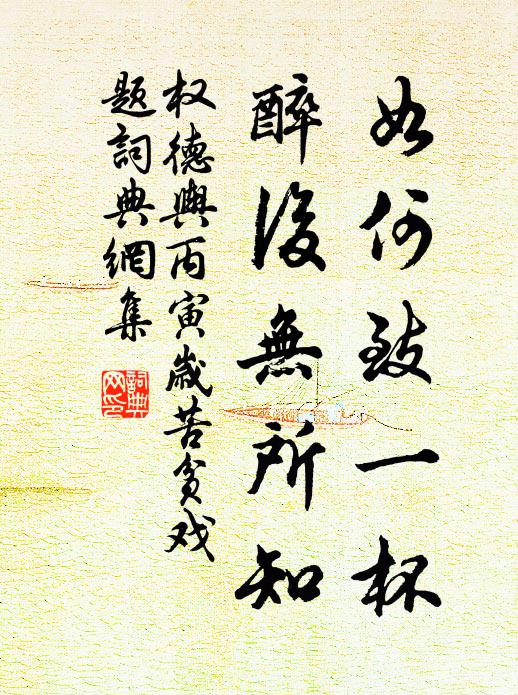 如何致一杯
醉後無所知
权德舆丙寅歲苦贫戏
题詞典網集
詞典网印